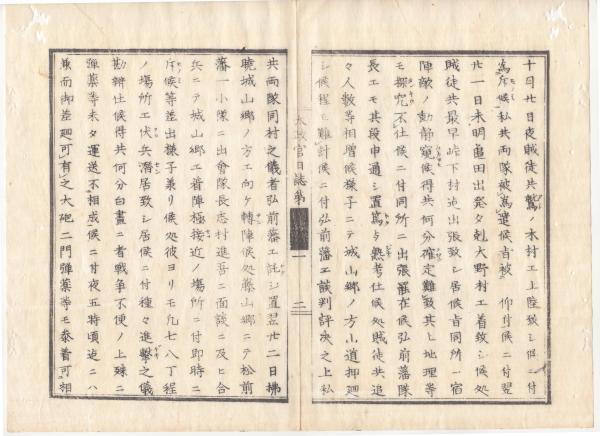 十月廿日夜賊徒共鷲ノ木村エ上陸致シ候ニ付
為斥候私共両隊被差遣候旨被 仰付候ニ付翌
廿一日未明亀田出発夕刻大野村エ着致シ候処
賊徒共最早峠下村迄出張致シ居候旨同所一宿
陣敵ノ動静窺候得共何分確定難致其上地理等
モ探究不仕候ニ付同所ニ出張罷在候弘前藩隊
長エモ其段申通シ置篤与熟考仕候処賊徒共追
々人数等相増候様子ニテ城山郷ノ方小道押廻
シ候程モ難計候ニ付弘前藩エ談判評決之上私
太政官日誌第
一
二
共両隊同村之儀者弘前藩エ託シ置翌廿二日拂
暁城山郷ノ方エ向ケ轉陣候処藤山郷ニテ松前
藩一小隊ニ出會隊長志村進吾ニ面談ニ及ヒ合
兵ニテ城山郷エ着陣極接近ノ場所ニ付即時ニ
斥候等差出様子兼リ候処彼ヨリモ凡七八丁程
ノ場所エ伏兵潜居致シ居候ニ付種々進撃之儀
勘辨仕候得共何分白晝ニ者戦争不便ノ上殊ニ
弾薬等未タ運送不相成候ニ付夜五時頃迄ニハ
兼而御差廻可有之大砲二門弾薬等モ参着可相